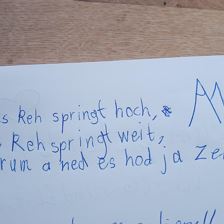 s Reh springt hoch,
Reh springt weit,
rum a ned es hod ja Ze